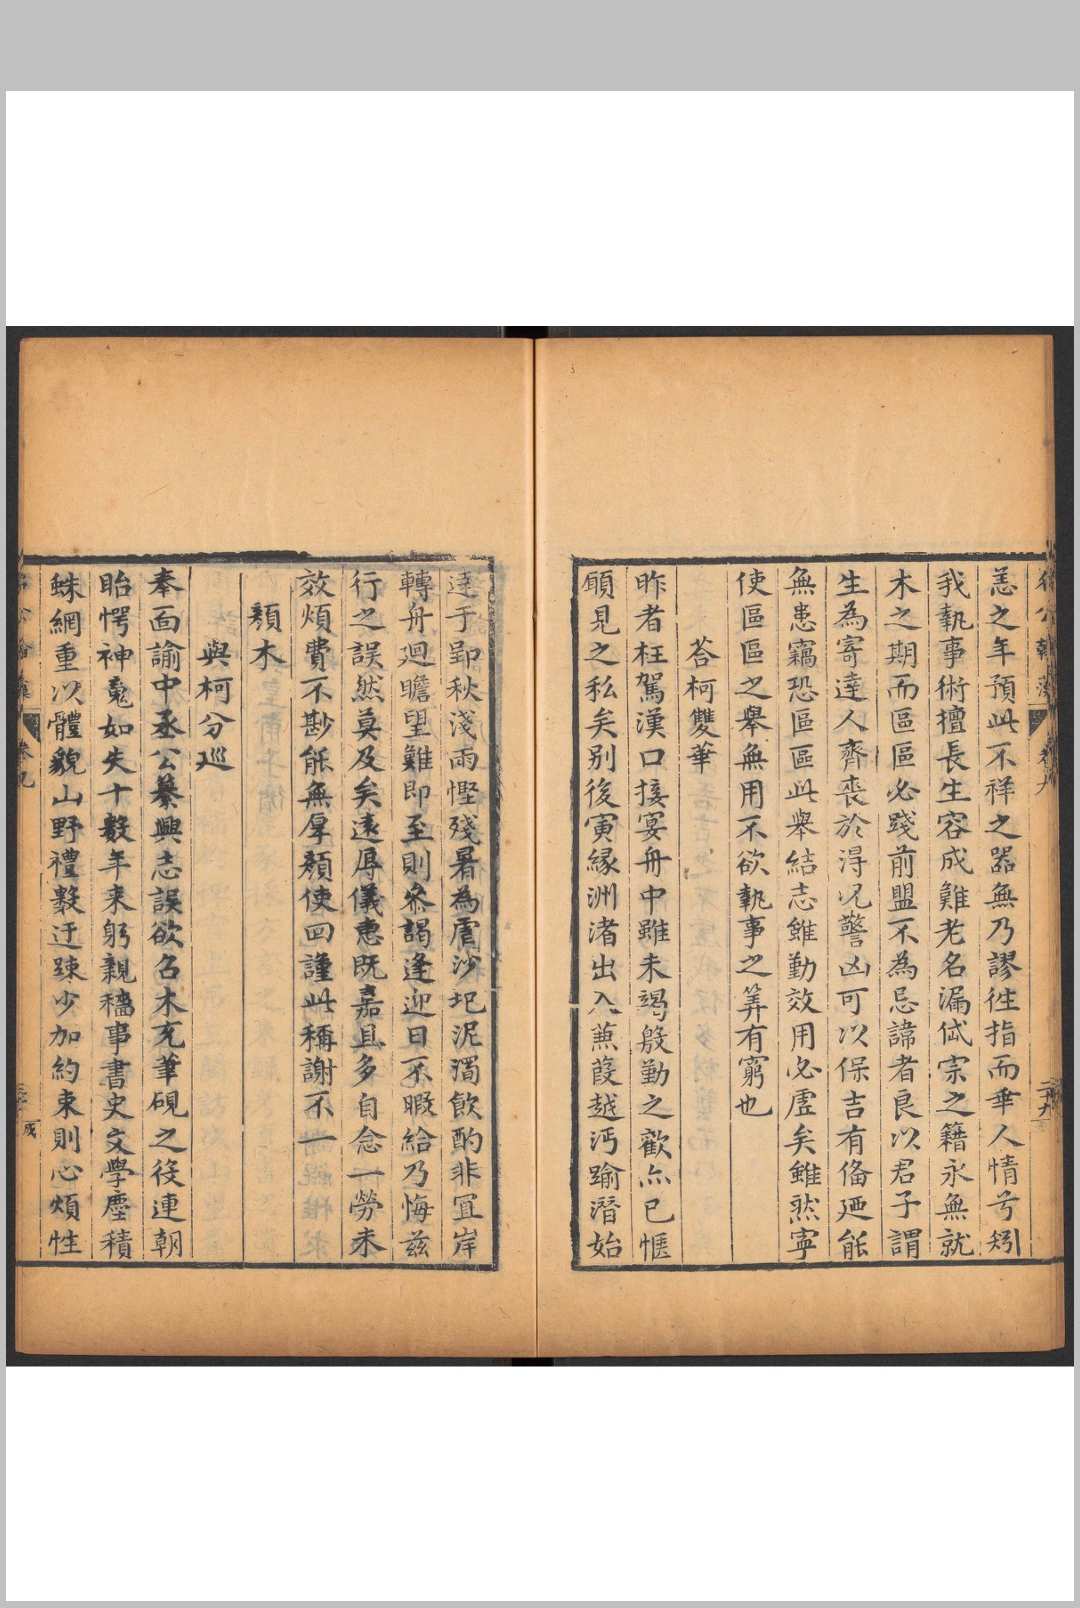 恙之年預此不祥之器無乃謬徃指而乖人情乎矧
我執事術擅長生容成難老名漏岱宗之籍永無就
木之期而區區必踐前盟不為忌諱者良以君子謂
生為寄達人齊喪於淂况警凶可以保吉有俻廼能
無患竊恐區區此舉結志雖勤效用必虛矣雖然寧
使區區之舉無用不欲執事之筭有窮也
荅柯雙華
昨者枉駕漢口接宴舟中雖未竭殷勤之歡亦已愜
願見之私矣别後寅縁洲渚出入蒹葭越沔踰潛始
達于郢秋淺雨慳殘暑為虐沙圯泥濁飲酌非宜岸
轉舟廻瞻望難即至則叅謁逢迎日不暇給乃悔兹
行之誤然莫及矣遠辱儀惠既嘉且多自念一勞未
效煩費不尠能無厚顔使回謹此稱謝不一
顙木
與柯分廵
奉面諭中丞公纂興志誤欲召木充筆硯之役連朝
眙愕神䰟如失十數年来躬親穡事書史文學塵積
蛛網重以體貌山野禮數迂踈少加約束則心煩性
卷九
二十九